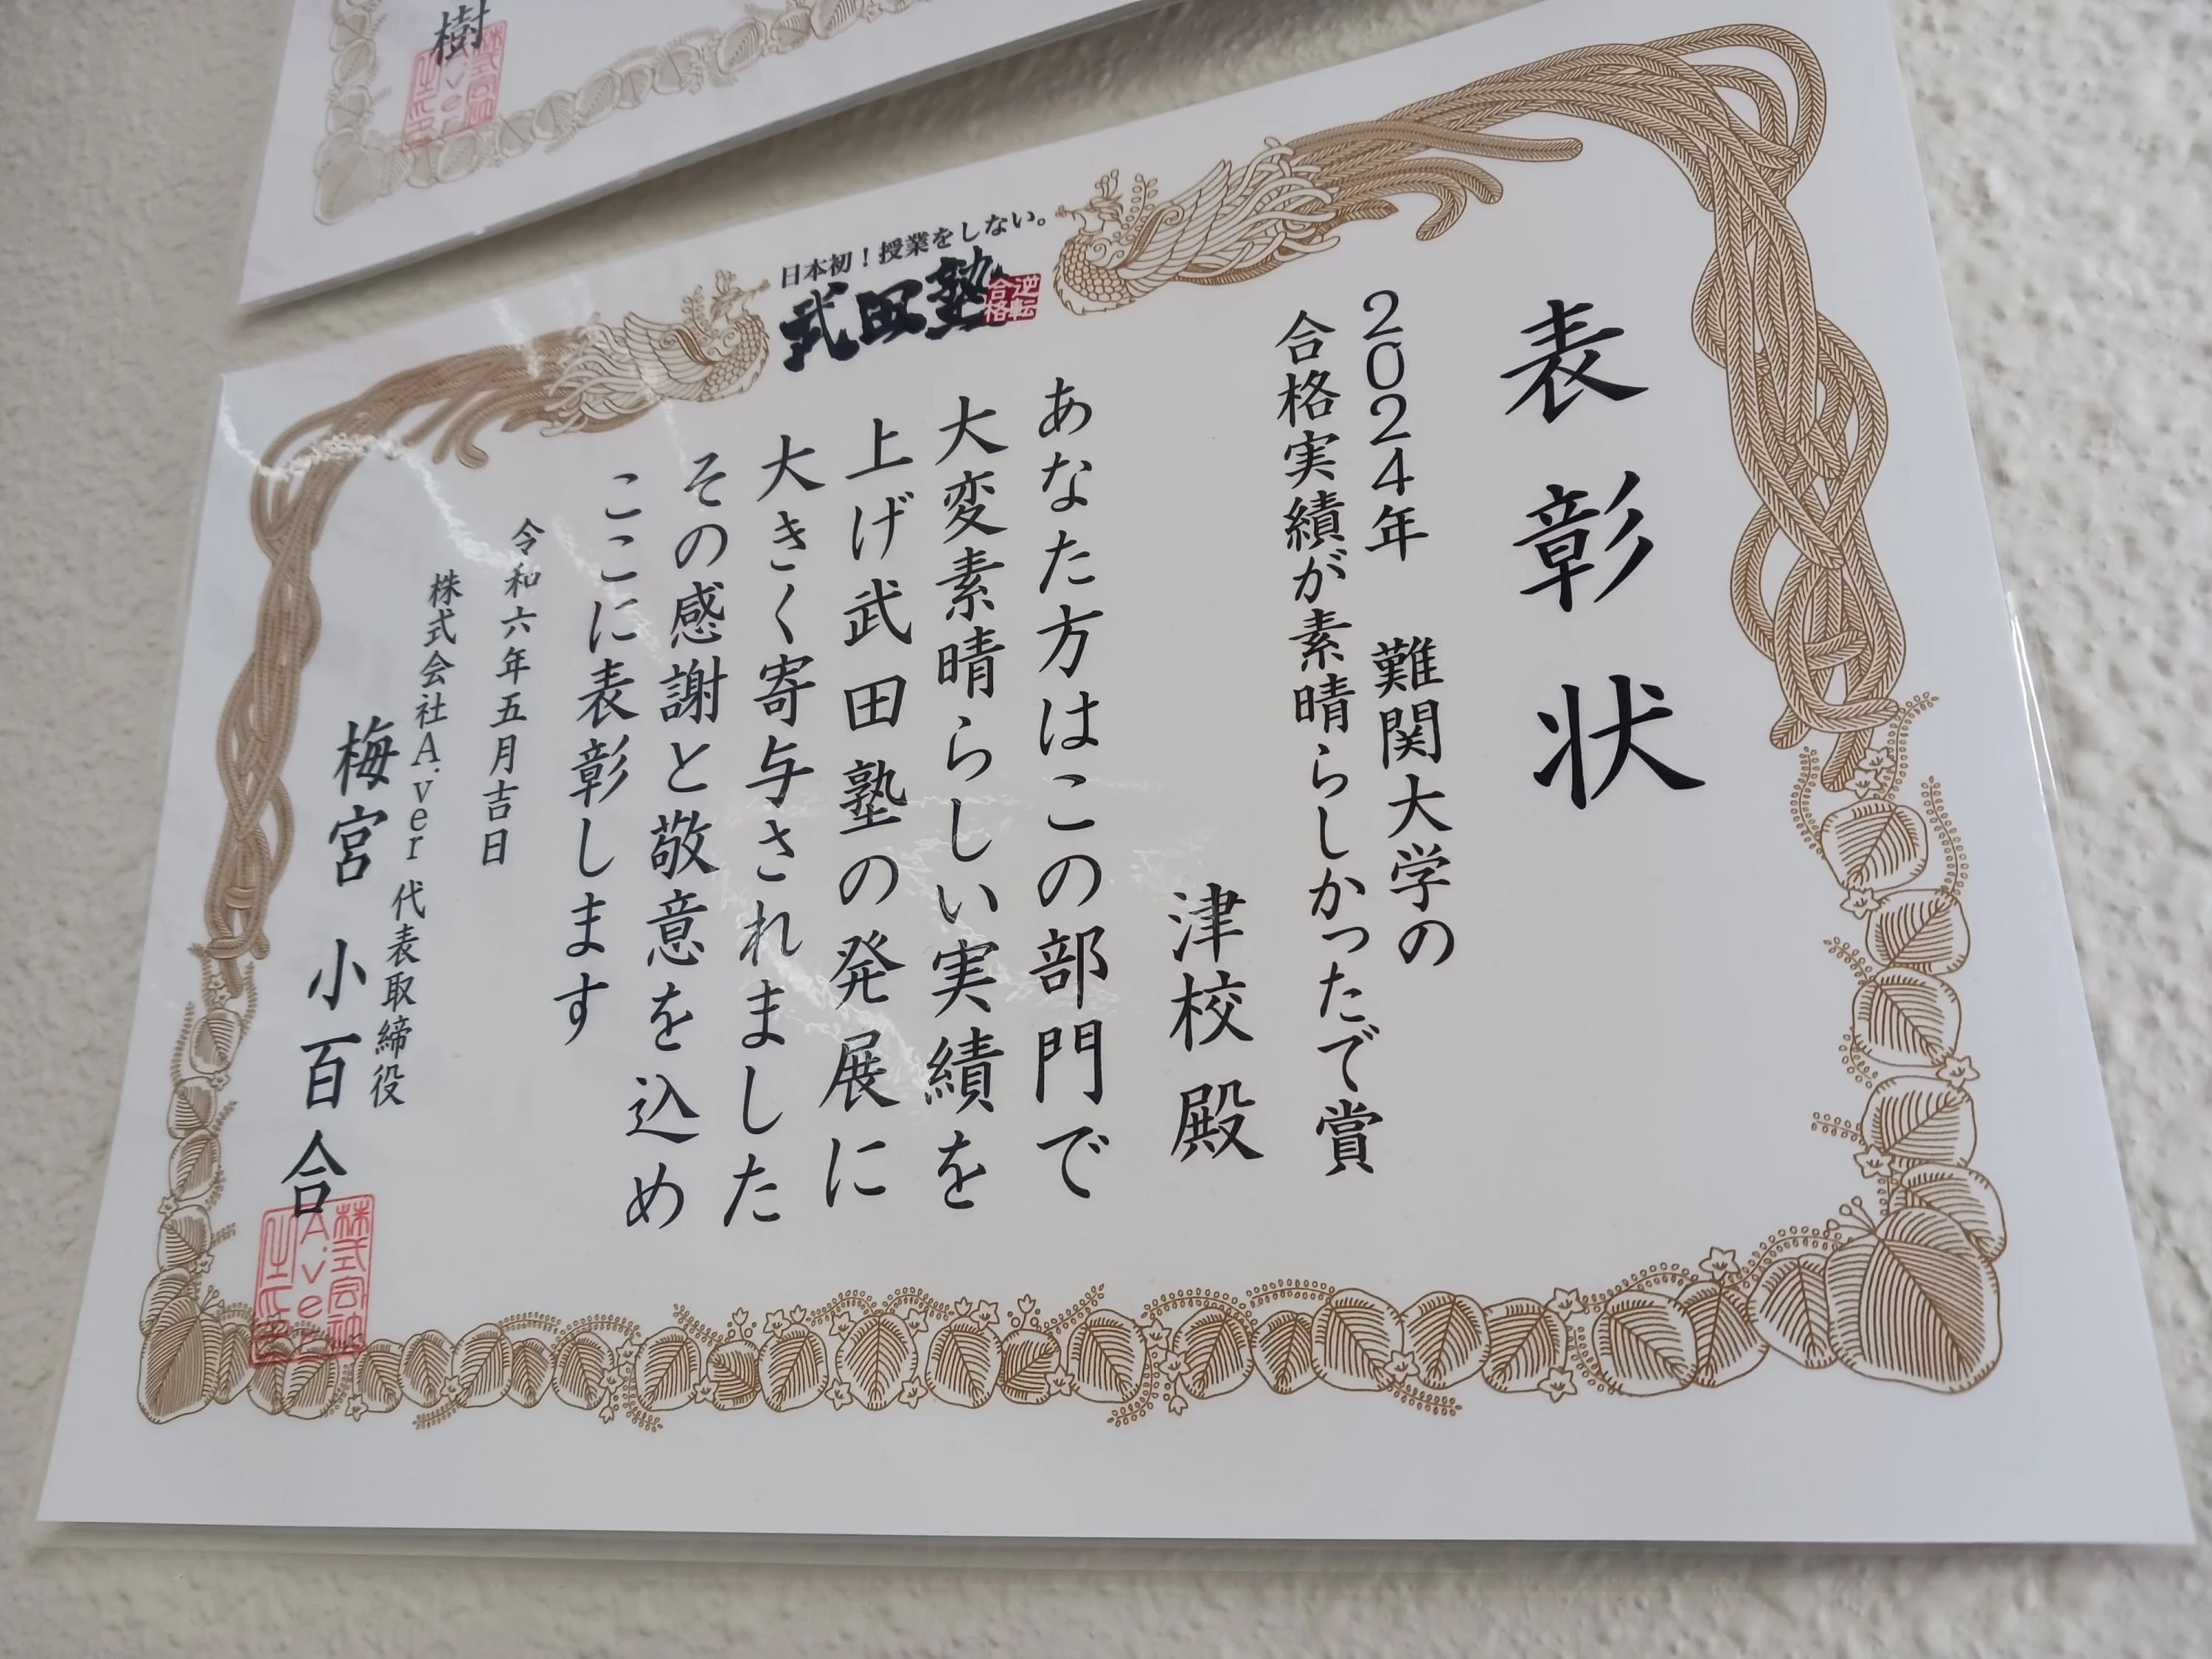 樹
日本初！授業をしない。
武田塾
逆転
合格
表彰状
2024年 難関大学の
合格実績が素晴らしかったで賞
津校 殿
あなた方はこの部門で
大変素晴らしい実績を
上げ武田塾の発展に
大きく寄与されました
その感謝と敬意を込め
ここに表彰します
令和六年五月吉日
株式会社A.ver 代表取締役
梅宮 小百合
株式会社
A.ver
之印